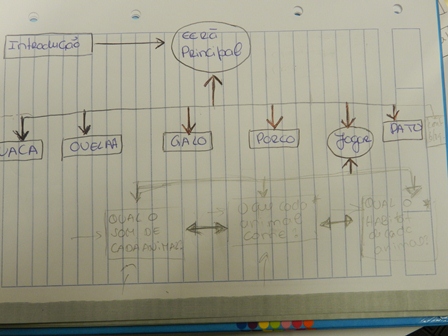 Introdução
ECRÃ
Principal
VACA
OVELHA
GALO
PORCO
Jogar
PATO
QUAL O
SOM DE
CADA ANIMAL
O que cada
animal
come?
QUAL O